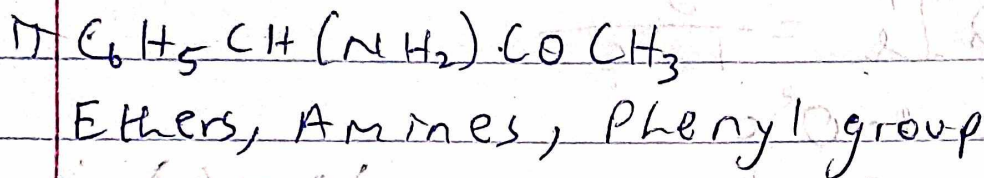 II C6H5CH(NH2).COCH3
Ethers, Amines, Phenyl group